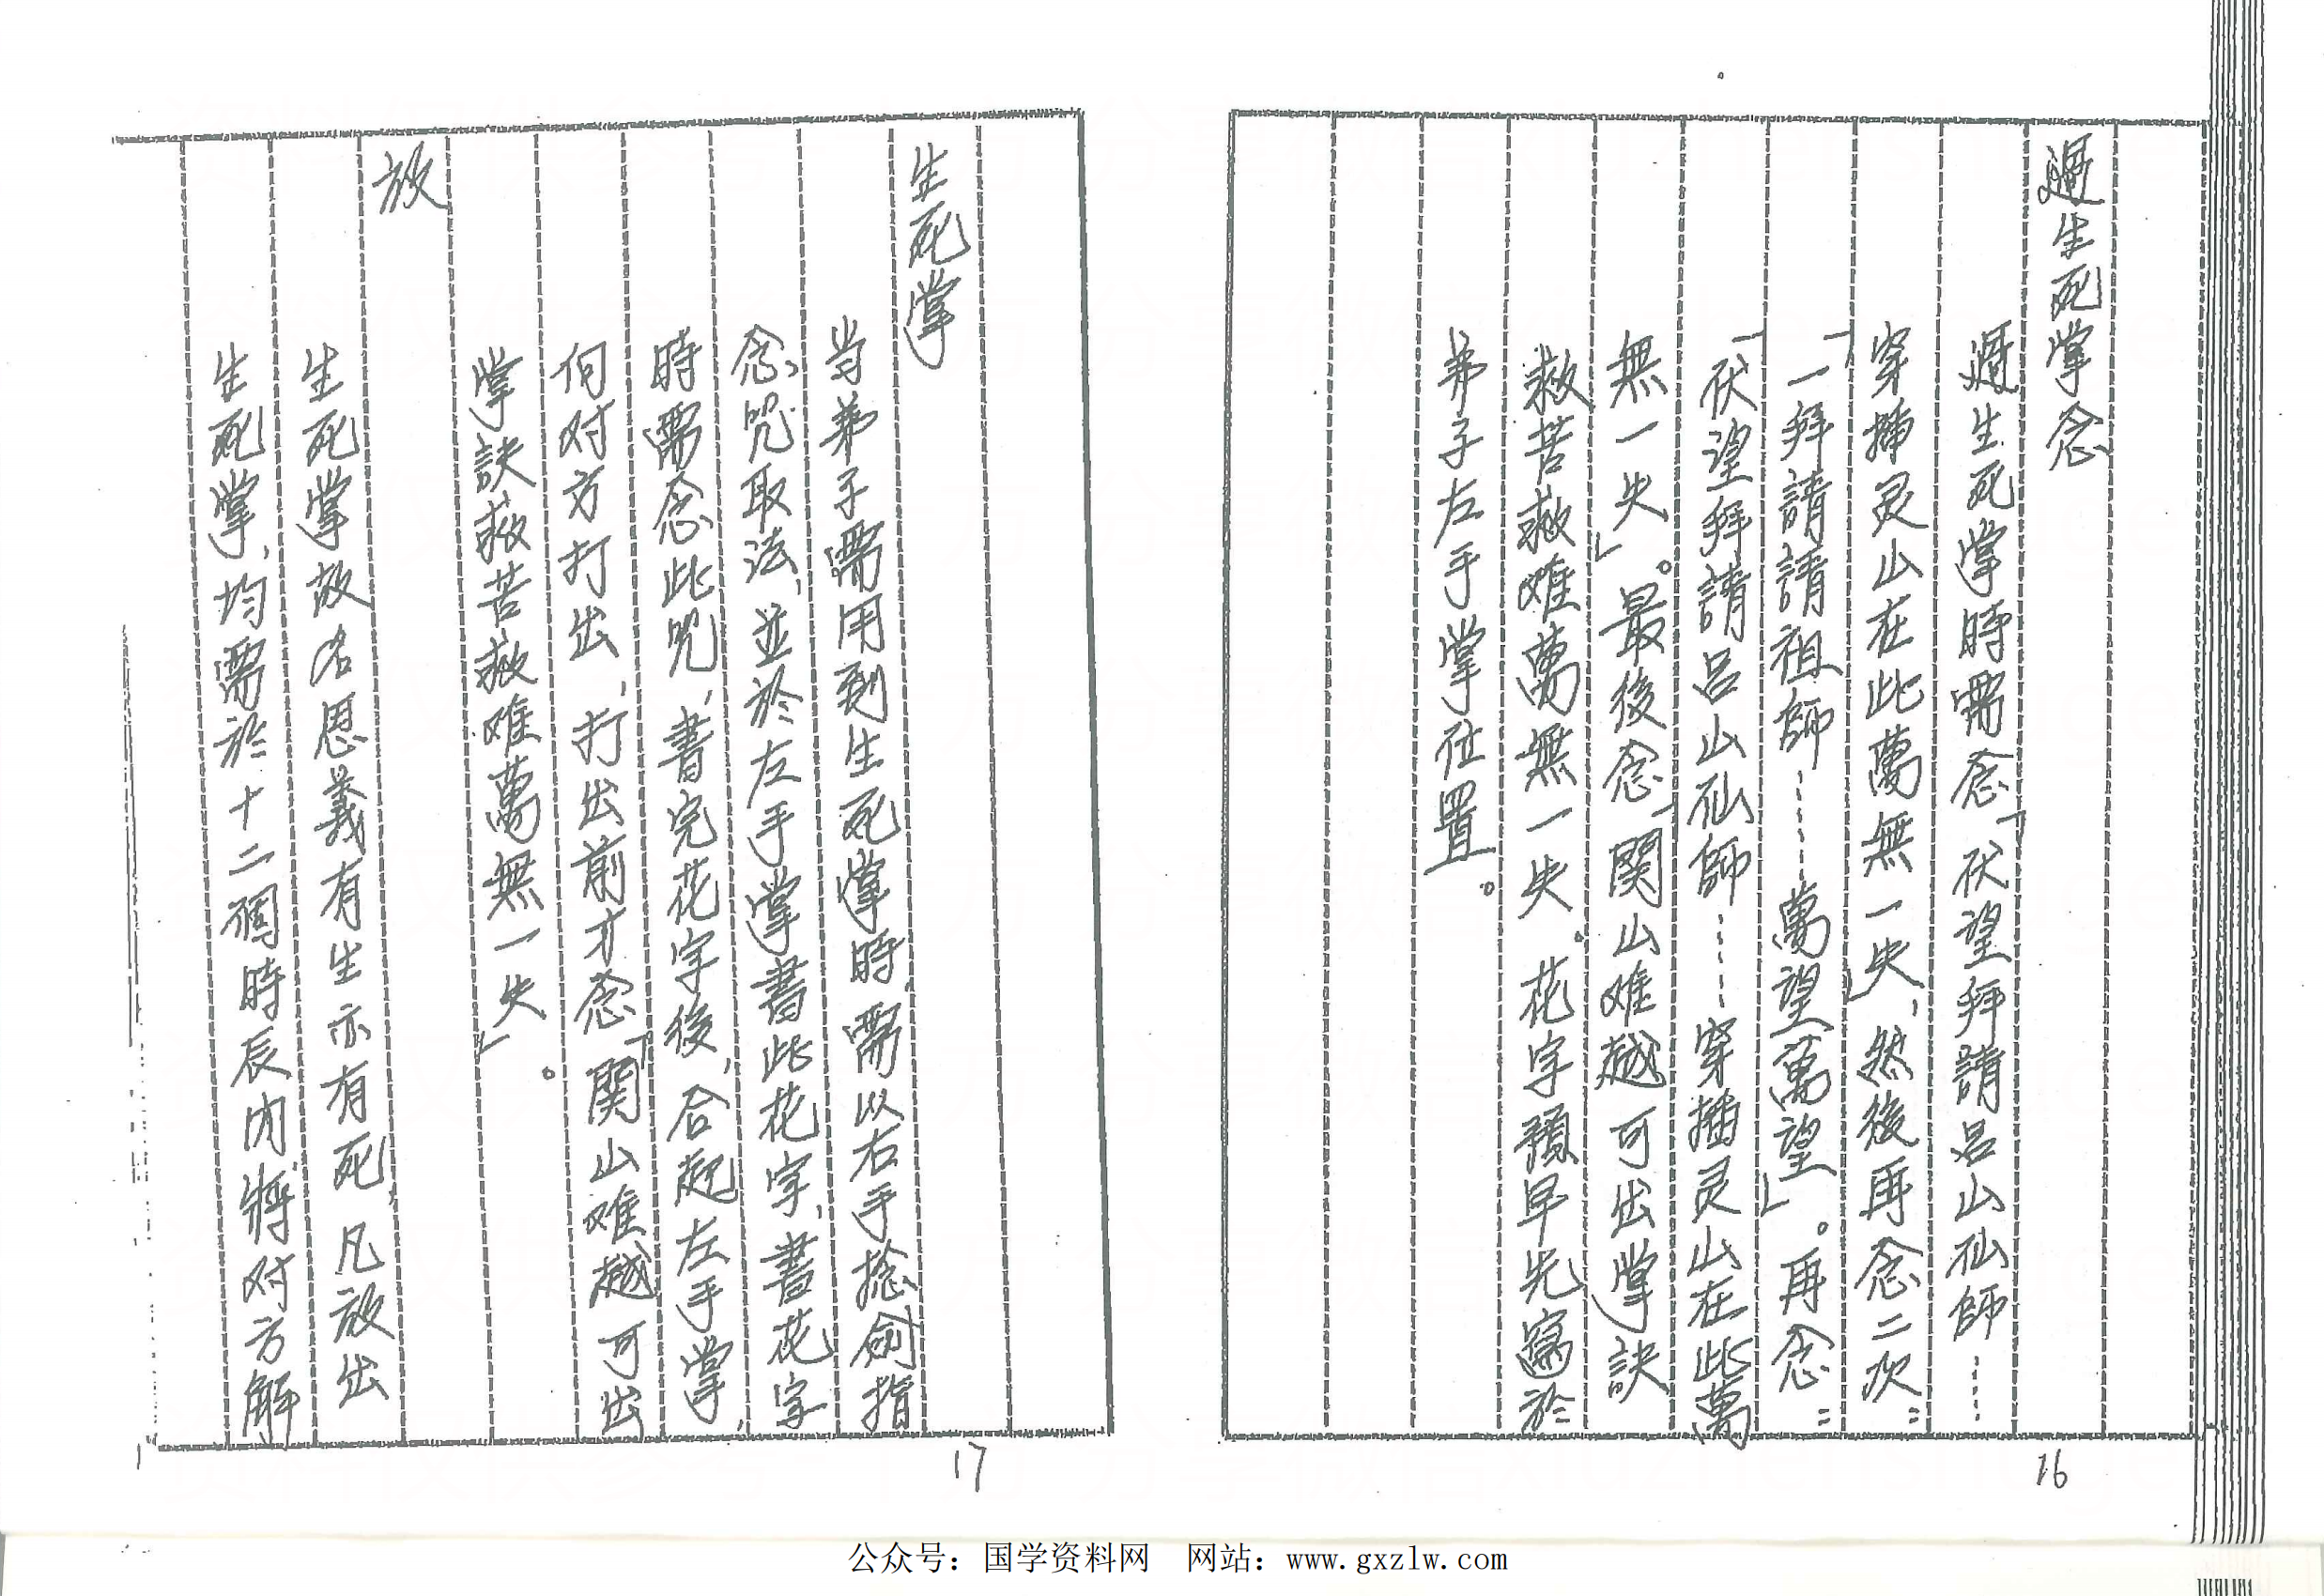 過生死掌念
過生死掌時需念「伏望拜請呂山仙師……
穿插灵山在此萬無一失」，然後再念二次：
「一拜請請祖師………萬望萬望」。再念：
「伏望拜請呂山仙師……穿插灵山在此萬
無一失」。最後念「関山难越可出掌訣
救苦救难萬無一失。花字預早先寫於
弟子左手掌位置。
16
生死掌
当弟子需用到生死掌時，需以右手捻劍指
念咒取法，並於左手掌書此花字，書花字
時需念此咒，書完花字後，合起左手掌，
向对方打出，打出前才念「関山难越可出
掌訣救苦救难萬無一失」。
放
生死掌故名思義有生亦有死，凡放出
生死掌，均需於十二個時辰內將对方解
17
公众号：国学资料网 网站：www.gxzlw.com